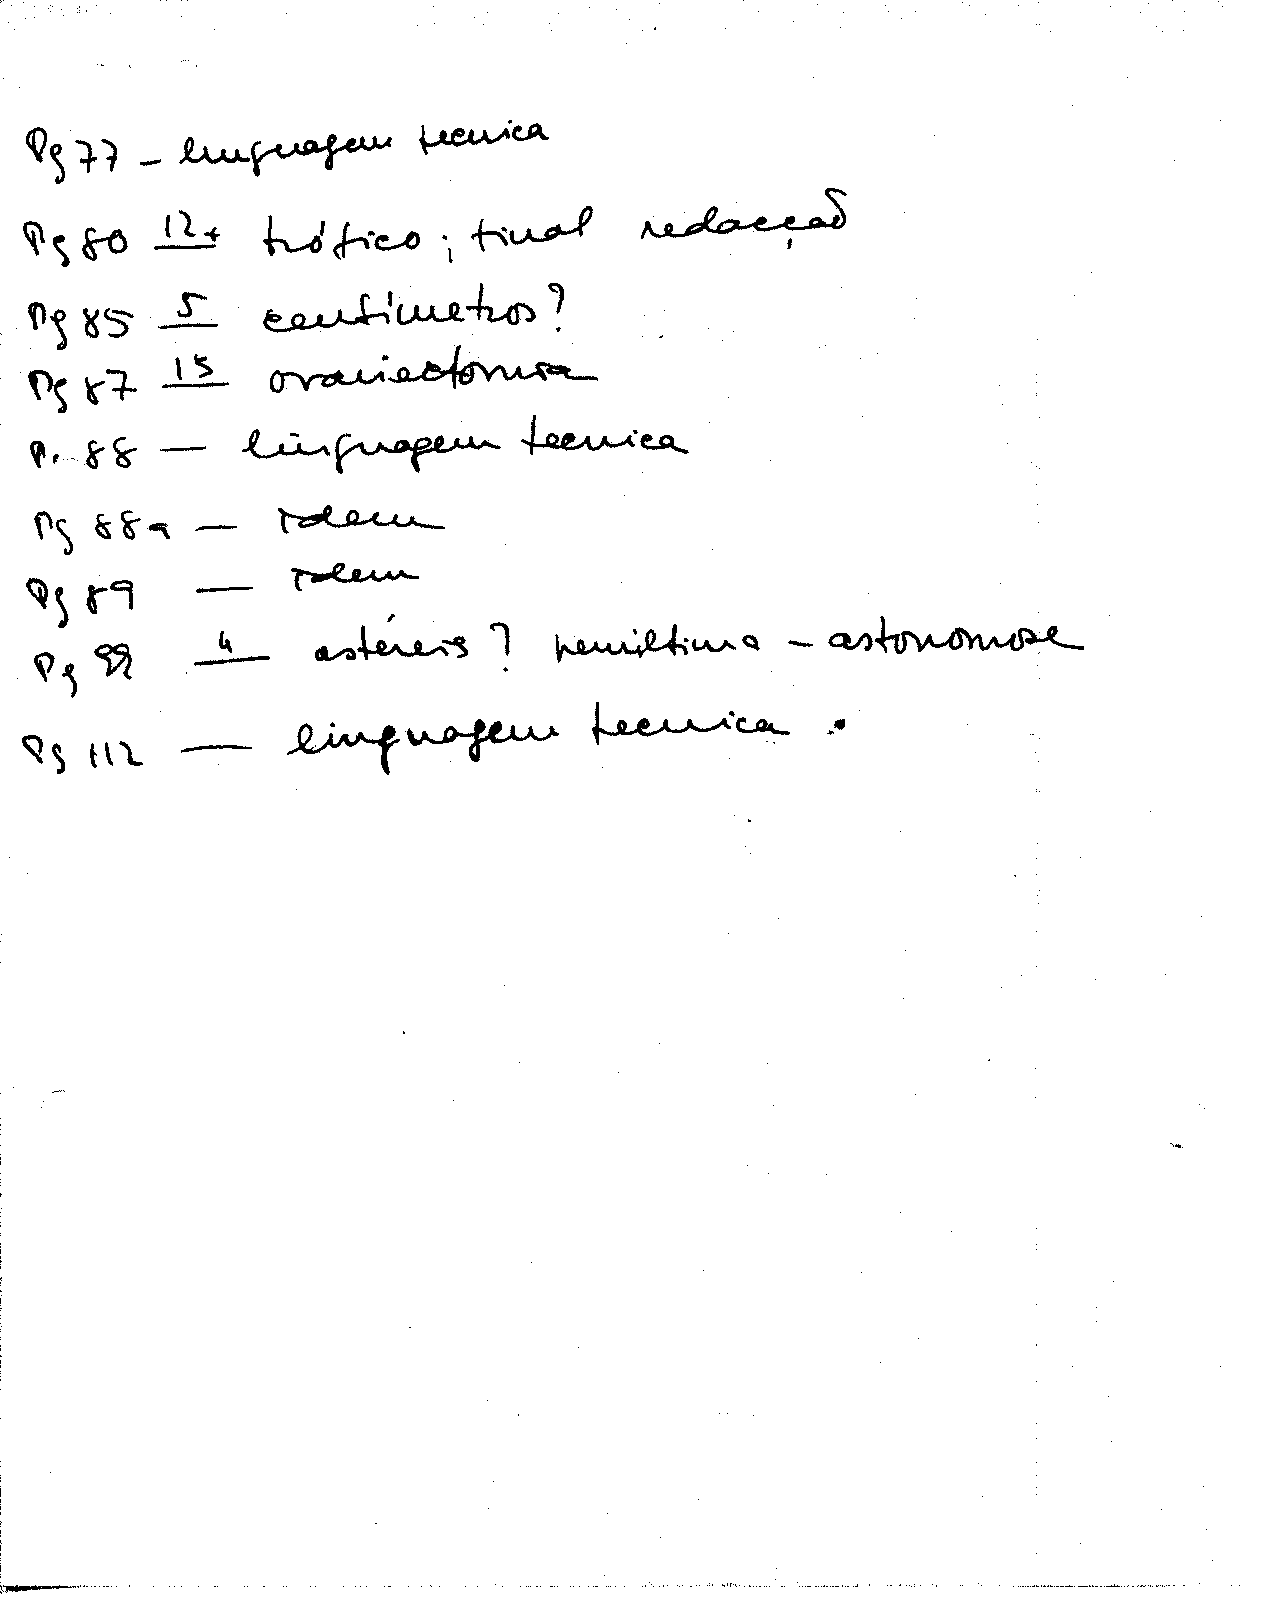 Pg 77 - linguagem tecnica
Pg 80 12+ trófico; final redacção
Pg 85 5 centímetros?
Pg 87 15 ovariectomia
P. 88 - linguagem tecnica
Pg 88a - Idem
Pg 89 - Idem
Pg 99 4 astéreis? penúltima - astonomose
Pg 112 - linguagem tecnica.